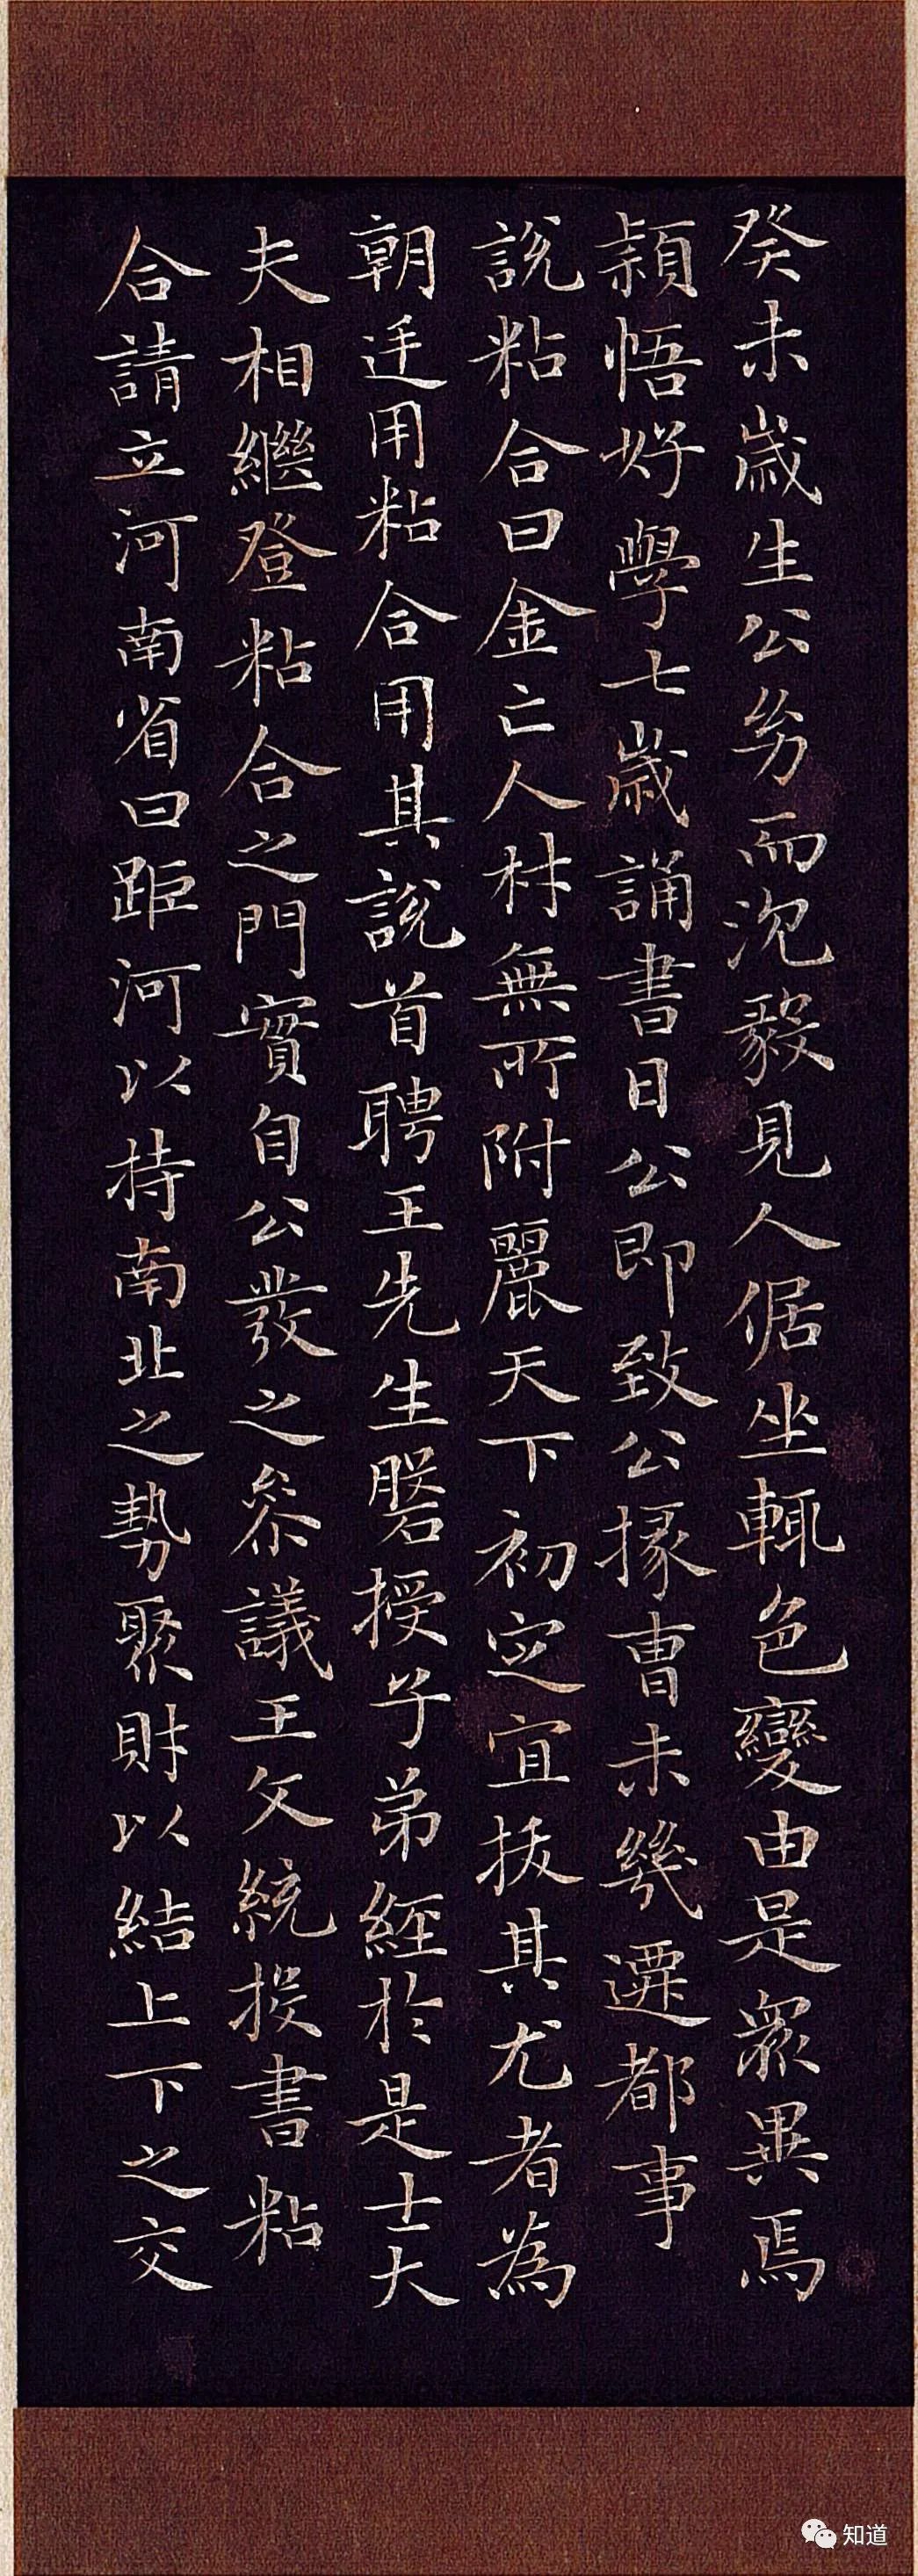 癸未歲生公㓜而沉毅見人倨坐輒色變由是衆異焉
穎悟好學七歲誦書日公即致公掾曹未幾遷都事
說粘合曰金亡人材無所附麗天下初定宜拔其尤者為
朝廷用粘合用其說首聘王先生磐授子弟經於是士大
夫相繼登粘合之門實自公發之叅議王文統投書粘
合請立河南省曰距河以持南北之勢聚財以結上下之交
知道